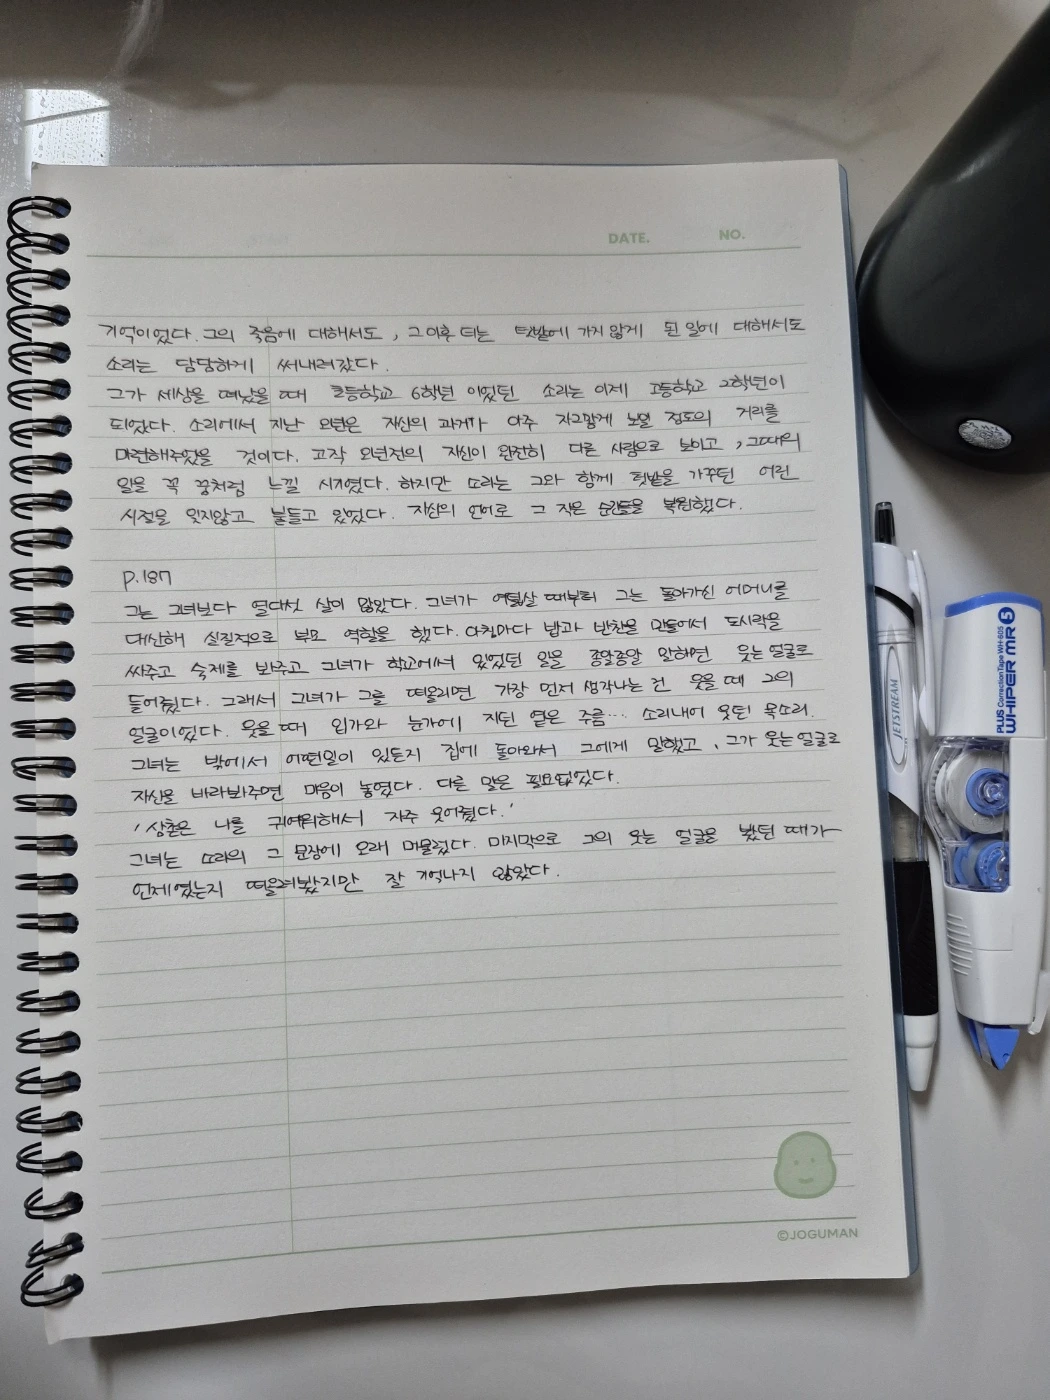 DATE. NO.
기억이었다. 그의 죽음에 대해서도, 그 이후 더는 텃밭에 가지 않게 된 일에 대해서도
소리는 담담하게 써내려갔다.
그가 세상을 떠났을 때 초등학교 6학년 이었던 소리는 이제 고등학교 2학년이
되었다. 소리에서 지난 5년은 자신의 과거가 아주 자그맣게 보일 정도의 거리를
마련해주었을 것이다. 고작 5년전의 자신이 완전히 다른 사람으로 보이고, 그때의
일을 꼭 꿈처럼 느낄 시기였다. 하지만 소리는 그와 함께 텃밭을 가꾸던 어린
시절을 잊지않고 붙들고 있었다. 자신의 언어로 그 작은 순간들을 복원했다.
P.187
그는 그녀보다 열다섯 살이 많았다. 그녀가 여덟살 때부터 그는 돌아가신 어머니를
대신해 실질적으로 부모 역할을 했다. 아침마다 밥과 반찬을 만들어서 도시락을
싸주고 숙제를 봐주고 그녀가 학교에서 있었던 일을 종알종알 말하면 웃는 얼굴로
들어줬다. 그래서 그녀가 그를 떠올리면 가장 먼저 생각나는 건 웃을 때 그의
얼굴이었다. 웃을 때 입가와 눈가에 지던 옅은 주름… 소리내어 웃던 목소리.
그녀는 밖에서 어떤일이 있든지 집에 돌아와서 그에게 말했고, 그가 웃는 얼굴로
자신을 바라봐주면 마음이 놓였다. 다른 말은 필요없었다.
'삼촌은 나를 귀여워해서 자주 웃어줬다.'
그녀는 소리의 그 문장에 오래 머물렀다. 마지막으로 그의 웃는 얼굴을 봤던 때가
언제였는지 떠올려봤지만 잘 기억나지 않았다.
©JOGUMAN
JETSTREAM
PLUS Correction Tape WH-605
WHIPER MR 5